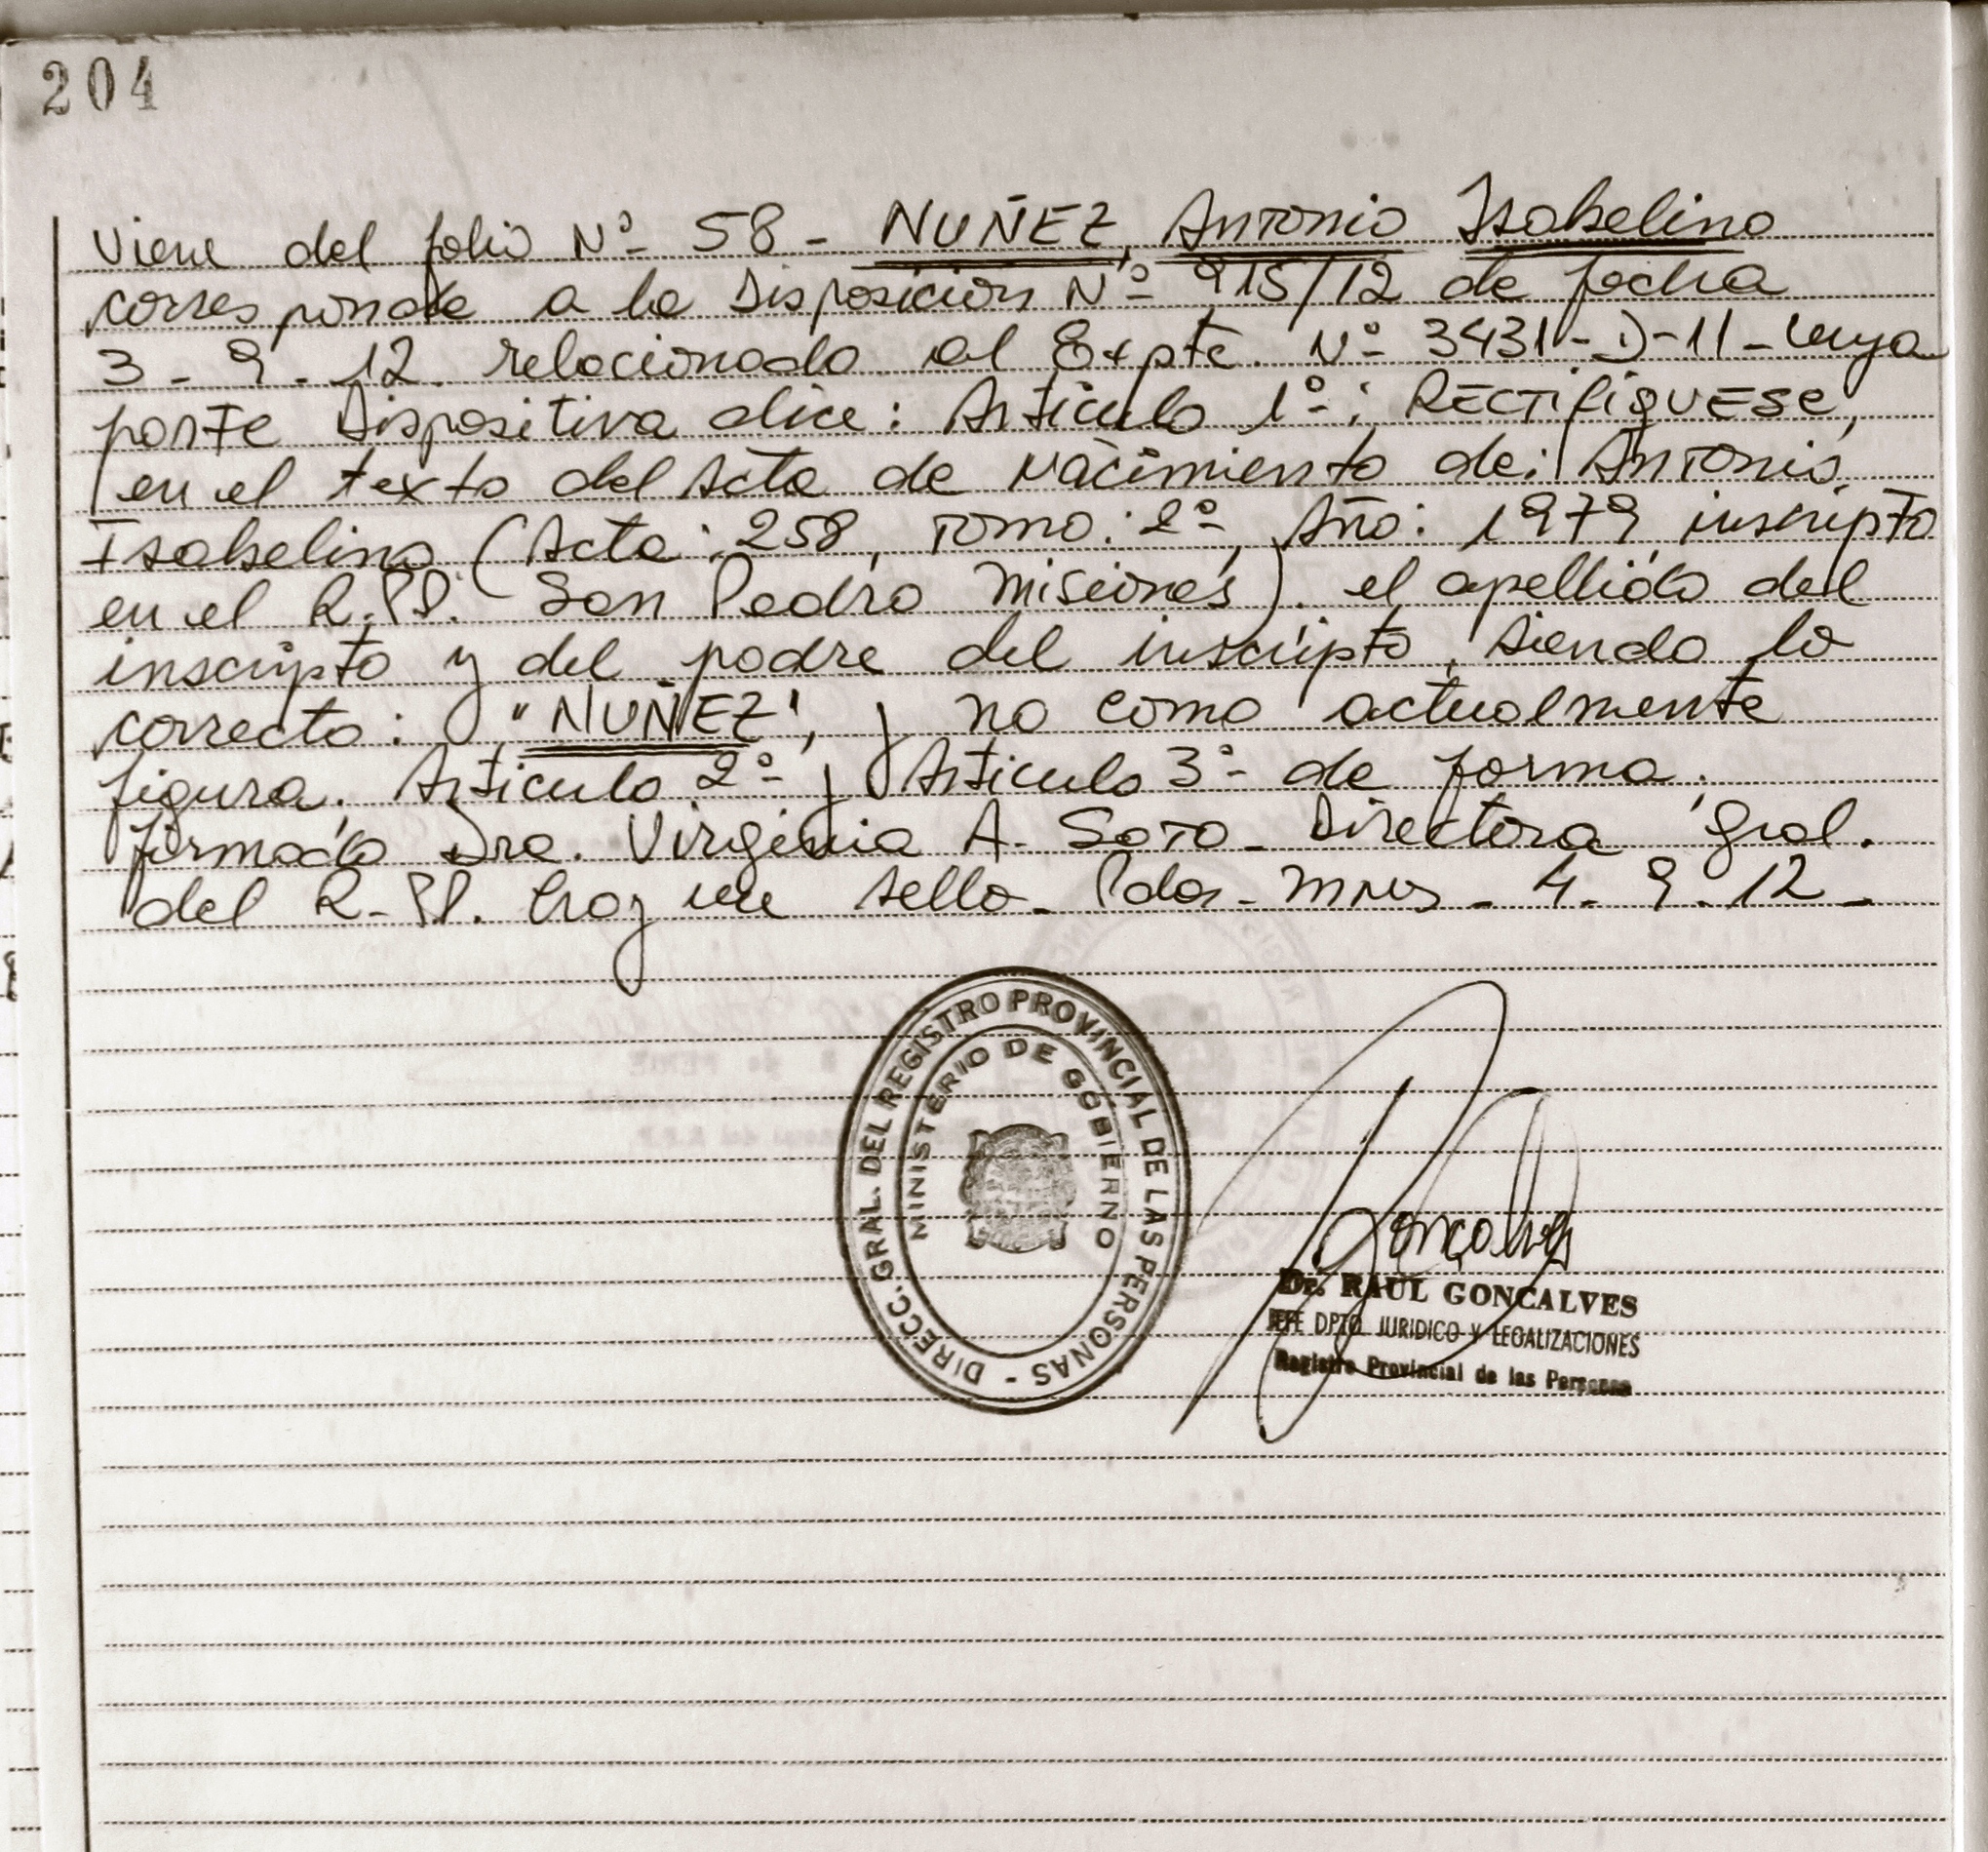 204
Viene del folio Nº 58 - NUÑEZ, Antonio Isabelino
corresponde a la Disposicion Nº 915/12 de fecha
3 - 9 - 12. relacionado al Expte. Nº 3431-D-11-Cuya
parte Dispositiva dice: Articulo 1º: RECTIFIQUESE,
en el texto del Acta de Nacimiento de: Antonio
Isabelino (Acta: 258, Tomo: 2º, Año: 1979, inscripto
en el R.P.P. San Pedro Misiones). el apellido del
inscripto y del padre del inscripto, siendo lo
correcto: "NUÑEZ", y no como actualmente
figura. Articulo 2º y Articulo 3º de forma.
firmado Dra. Virginia A. Soto - Directora Gral.
del R.P.P. Hay un sello - Pdas - Mnes - 4 - 9 - 12 -
DIRECC. GRAL. DEL REGISTRO PROVINCIAL DE LAS PERSONAS -
MINISTERIO DE GOBIERNO
Goncalves
Dr. RAUL GONCALVES
JEFE DPTO. JURIDICO Y LEGALIZACIONES
Registro Provincial de las Personas